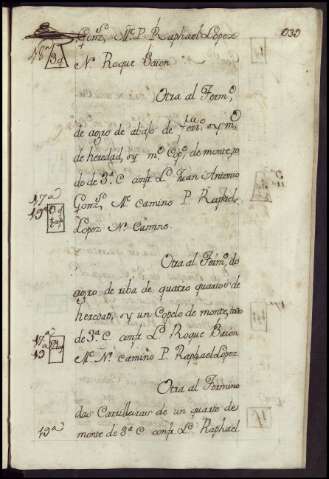 Gonz.s M.e P. Raphael Lopez 030
N. Roque Baion
Otra al Term.o
de agro de abajo de
de heredad, y m.o Cop.o de monte, to
do de 3.a C. conf. L. Juan Antonio
Gonz.s M.e Camino P. Raphael
Lopez N. Camino.
Otra al Term.o do
agro de riba de quatro quartos de
heredad, y un Copelo de monte, todo
de 3.a C. conf. L. Roque Baion
M.e N. camino P. Raphael Lopez
Otra al Termino
das Carvalleiras de un quarto de
19.a monte de 3.a C. conf. L. Raphael